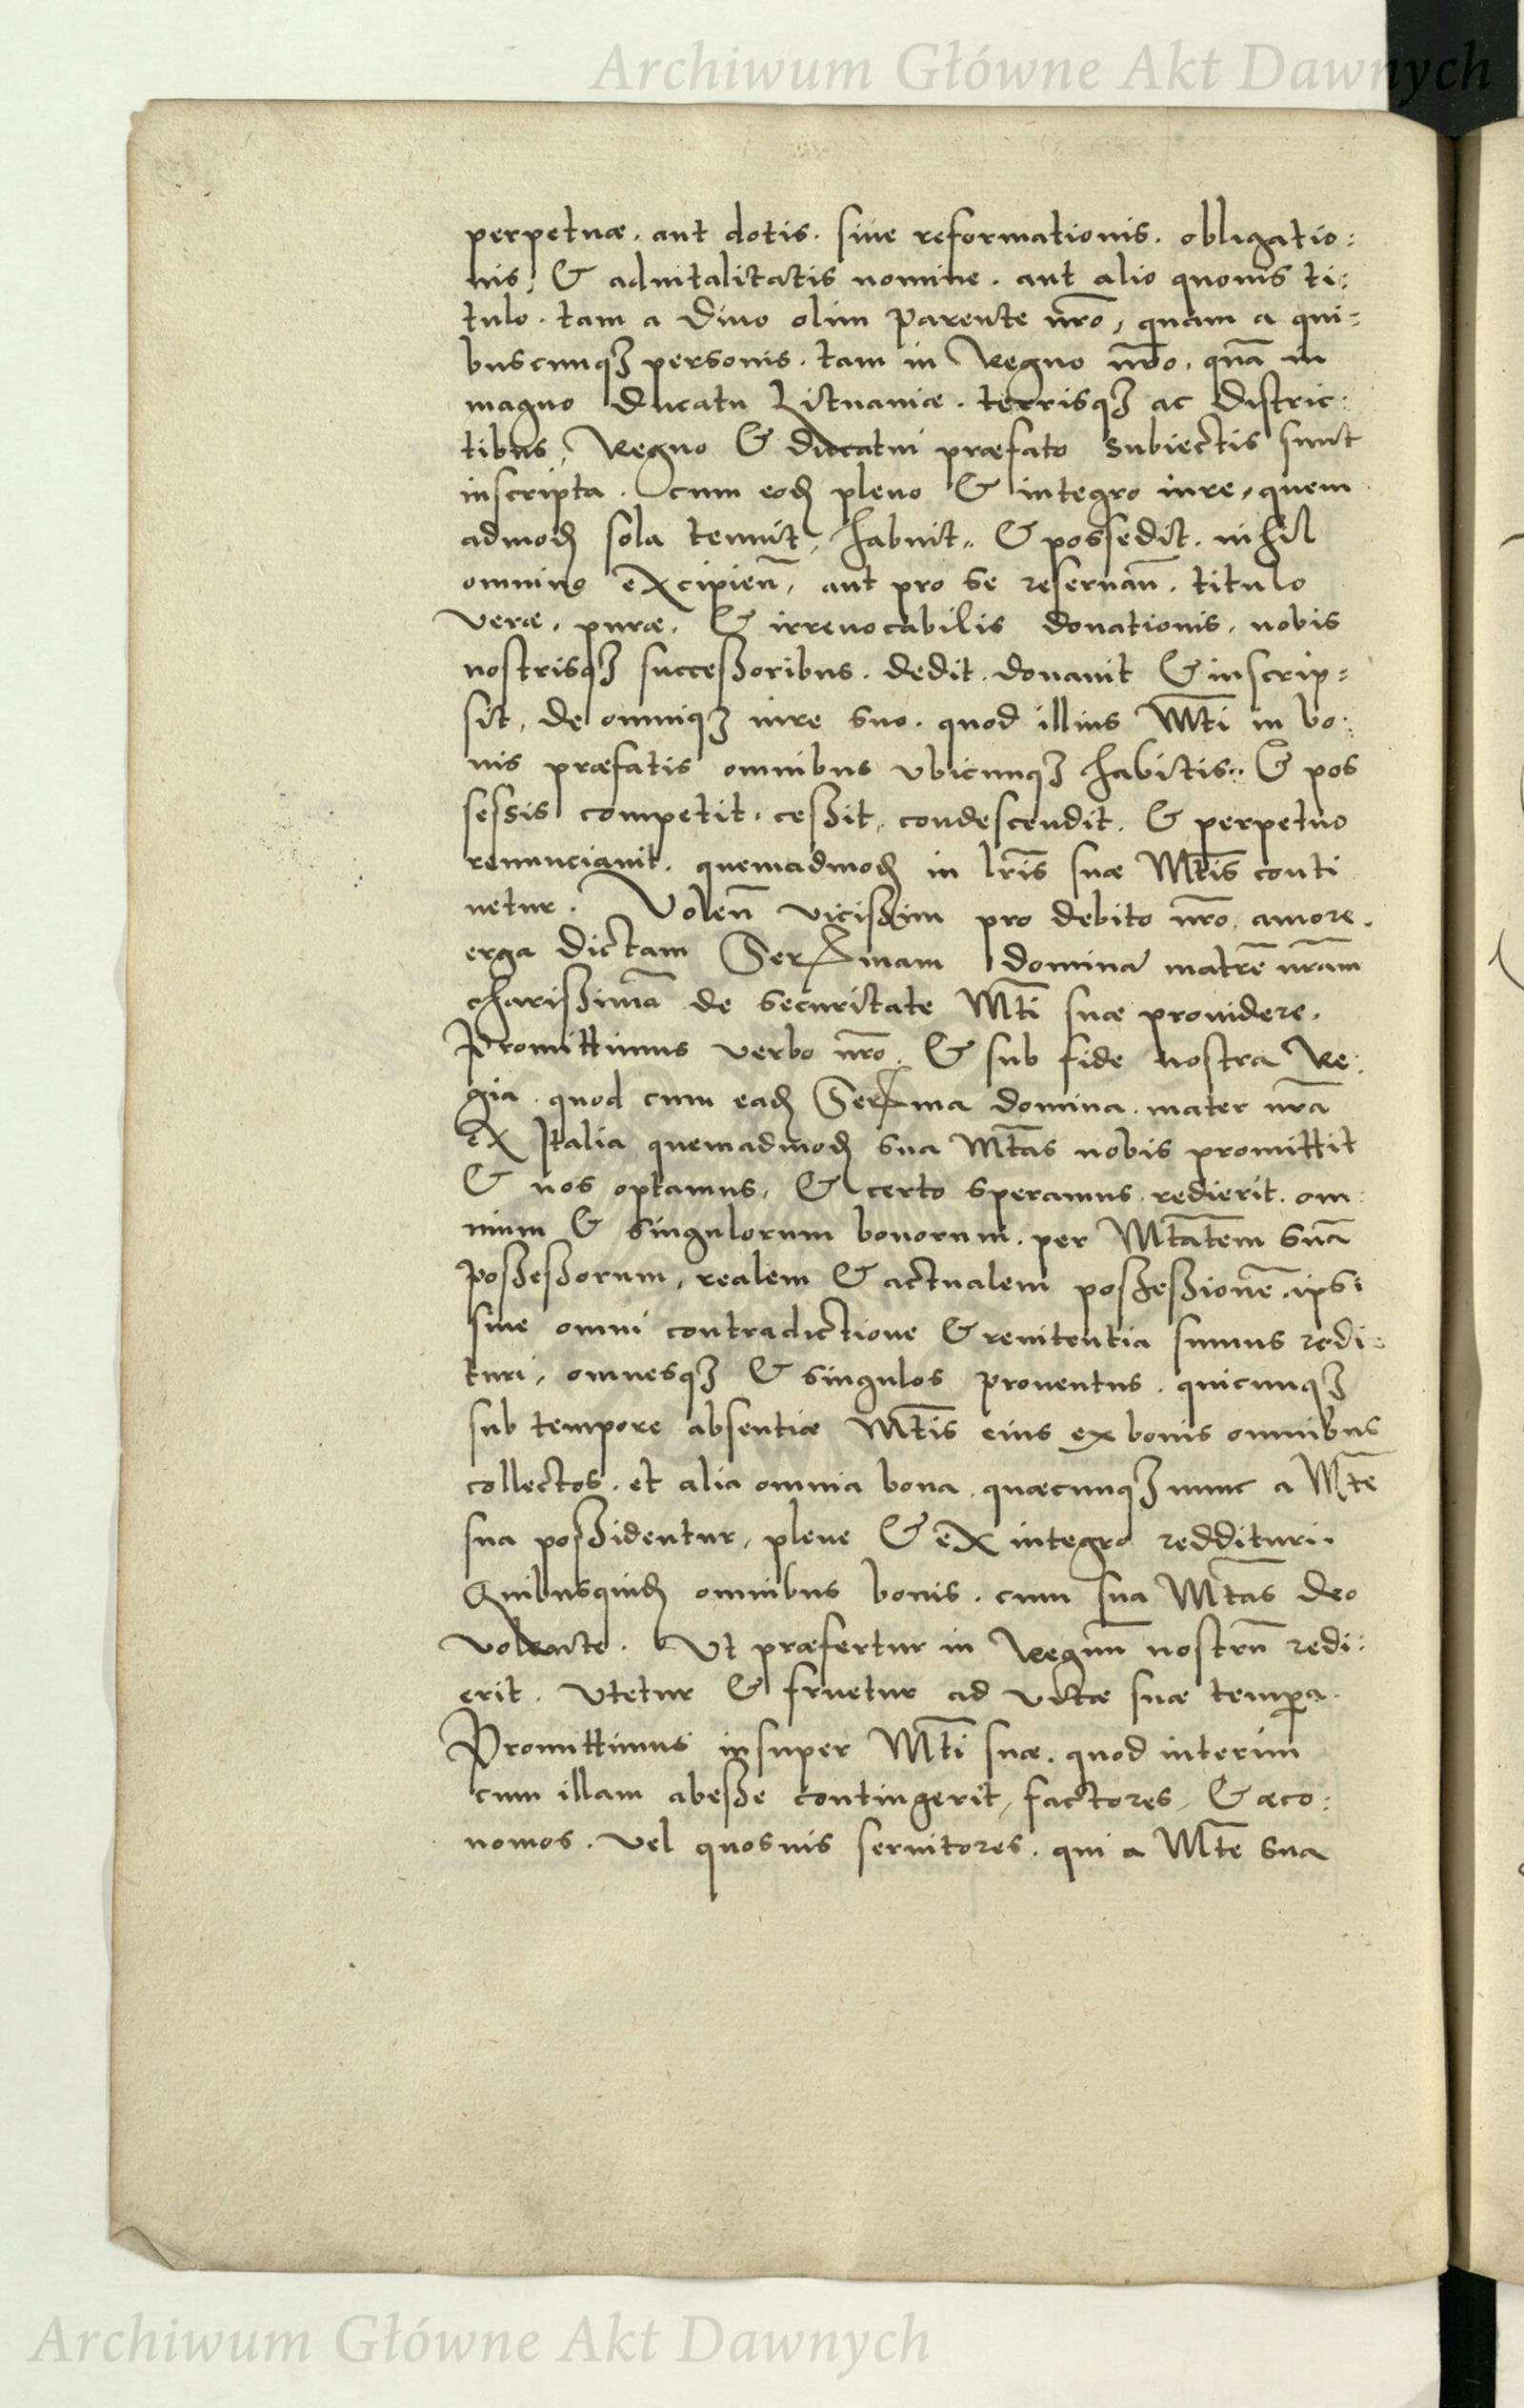 Archiwum Główne Akt Dawnych
perpetuæ. aut dotis. siue reformationis. obligatio:
nis, & aduitalitatis nomine. aut alio quouis ti:
tulo. tam a Diuo olim Parente nr̄o, quam a qui=
buscunqꝫ personis. tam in Regno nr̄o. quā in
magno Ducatu Lituaniæ. terrisqꝫ ac distric:
tibus, Regno & ducatui præfato subiectis sunt
inscripta. cum eoꝺ pleno & integro iure, quem
admoꝺ sola tenuit, habuit,, & possedit. nihil
omnino excipień, aut pro se reseruań. titulo
veræ. puræ. & irreuocabilis donationis. nobis
nostrisqꝫ succeßoribus. dedit. donauit & inscrip=
sit, de omniqꝫ iure suo. quod illius Mti̅ in bo:
nis præfatis omnibus vbicunqꝫ habitis,, & pos
sessis competit. ceßit, condescendit. & perpetuo
renunciauit. quemadmoꝺ in lr̄is suæ Mti̅s conti
netur. Voleń vicißim pro debito nr̄o amore.
erga dictam Serꝭmam dominā matrē nr̄am
charißimā de securitate Mti̅ suæ prouidere.
Promittimus verbo nr̄o. & sub fide nostra Re:
gia. quod cum eaꝺ Serꝭma domina. mater nr̄a
ex Italia quemadmoꝺ sua Mta̅s nobis promittit
& nos optamus, & certo speramus. redierit. om:
nium & singulorum bonorum. per Mta̅tem suā
poßeßorum, realem & actualem poßeßionē. ipsi
sine omni contradictione & renitentia sumus redi:
turi, omnesqꝫ & singulos prouentus. quicunqꝫ
sub tempore absentiæ Mti̅s eius ex bonis omnibus
collectos. et alia omnia bona. quæcunqꝫ nunc a Mte̅
sua poßidentur, plene & ex integro reddituri.
Quibusquiꝺ omnibus bonis. cum sua Mta̅s deo
volente. Ut præfertur in Regnū nostrū redi:
erit. Vtetur & fruetur ad vitæ suæ tempꝑa.
Promittimus insuper Mti̅ suæ. quod interim
cum illam abeße contingerit, factores, & æco:
nomos. vel quosuis seruitores. qui a Mte̅ sua
Archiwum Główne Akt Dawnych